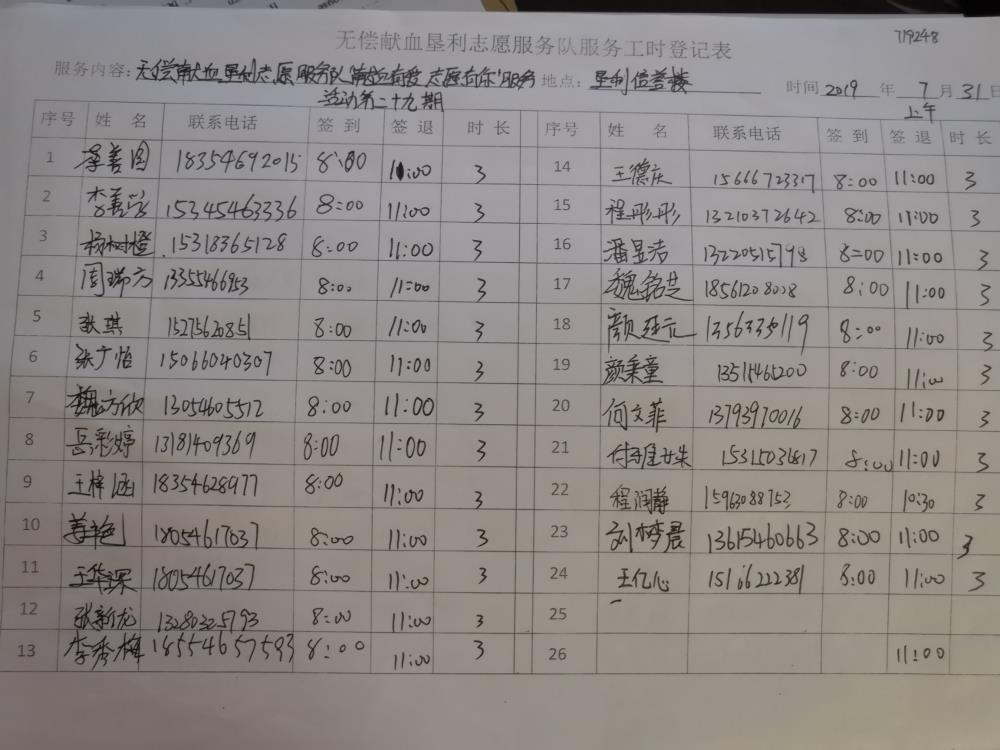 719248
无偿献血垦利志愿服务队服务工时登记表
服务内容:无偿献血垦利志愿服务队"献血有爱 志愿有你"服务 地点: 垦利信誉楼 时间 2019 年 7 月 31 日
活动第二十九期 上午
序号 姓 名 联系电话 签 到 签 退 时 长 序号 姓 名 联系电话 签 到 签 退 时 长
1 18354692015 8:00 11:00 3 14 王德庆 15666723317 8:00 11:00 3
2 李善 15345463336 8:00 11:00 3 15 程彤彤 13210372642 8:00 11:00 3
3 杨树橙 15318365128 8:00 11:00 3 16 潘昱洁 13220515798 8:00 11:00 3
4 周瑞方 13355466953 8:00 11:00 3 17 魏铭芝 18561208028 8:00 11:00 3
5 张琪 15275620851 8:00 11:00 3 18 颜廷元 13563335119 8:00 11:00 3
6 张广怡 15066040307 8:00 11:00 3 19 颜秉童 13511461200 8:00 11:00 3
7 魏方欣 13054605512 8:00 11:00 3 20 何文菲 13793970016 8:00 11:00 3
8 岳彩婷 13181409369 8:00 11:00 3 21 8:00 11:00 3
9 王梓涵 18354628977 8:00 11:00 3 22 程润静 15963088753 8:00 10:30 3
10 姜艳 18054617037 8:00 11:00 3 23 刘梦晨 13615460663 8:00 11:00 3
11 王华深 18054617037 8:00 11:00 3 24 王亿心 15166222381 8:00 11:00 3
12 张新龙 13280325793 8:00 11:00 3 25
13 李秀梅 18554657593 8:00 11:00 3 26 11:00